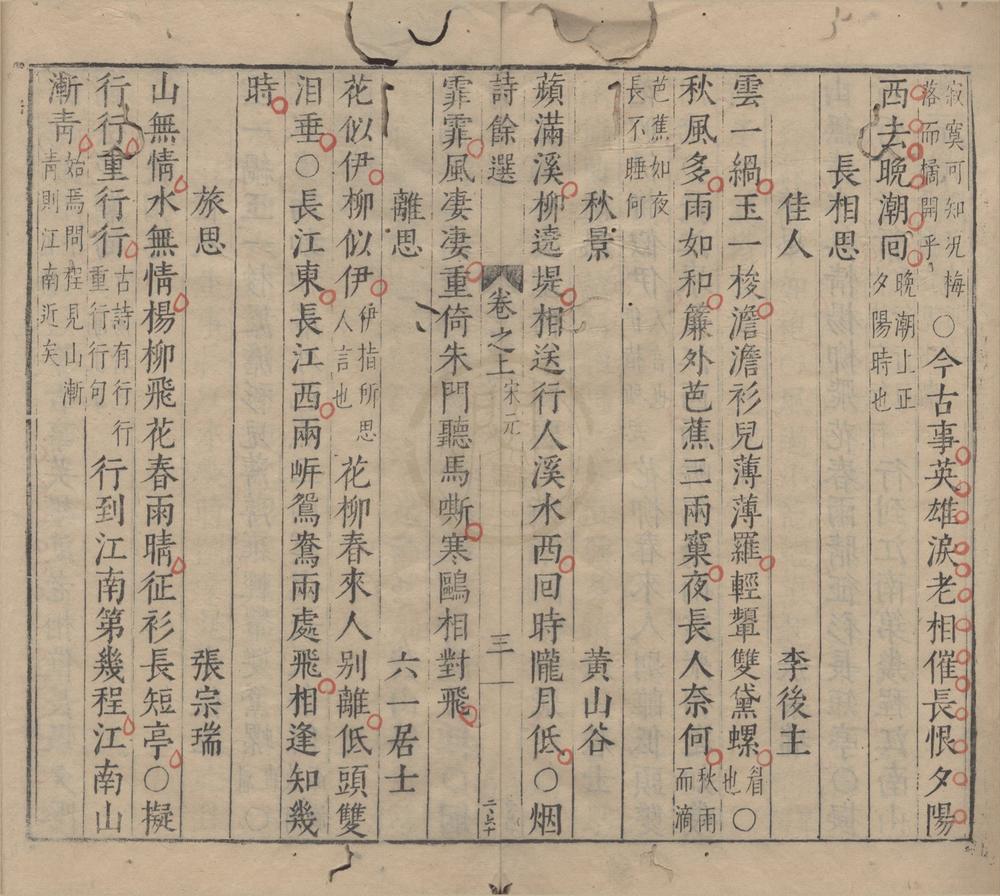 寂寞可知況梅落而橘開乎○今古事英雄淚老相催長恨夕陽
西去晚潮回晚潮上正夕陽時也
長相思
佳人 李後主
雲一緺玉一梭澹澹衫兒薄薄羅輕顰雙黛螺眉也○
秋風多雨如和簾外芭蕉三兩窠夜長人奈何秋雨而滴
芭蕉如夜長不睡何
秋景 黃山谷
蘋滿溪柳遶堤相送行人溪水西回時隴月低○烟
詩餘選 卷之上 宋元 三
霏霏風凄凄重倚朱門聽馬嘶寒鷗相對飛
離思 六一居士
花似伊柳似伊伊指所思人言也花柳春來人別離低頭雙
泪垂○長江東長江西兩岍鴛鴦兩處飛相逢知幾
時
旅思 張宗瑞
山無情水無情楊柳飛花春雨晴征衫長短亭○擬
行行重行行古詩有行行重行行句行到江南第幾程江南山
漸青始焉問程見山漸青則江南近矣